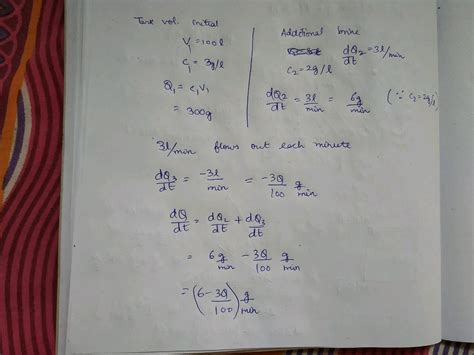 Tank vol. initial
V₁ = 100l
c₁ = 3g/l
Q₁ = c₁V₁
= 300g
Additional brine
dQ₂/dt = 3l/min
c₂ = 2g/l
dQ₂/dt = 3l/min = 6g/min (∵ c₂ = 2g/l)
3l/min flows out each minute
dQ₃/dt = -3l/min = -3Q/100 g/min
dQ/dt = dQ₂/dt + dQ₃/dt
= 6 g/min - 3Q/100 g/min
= (6 - 3Q/100) g/min